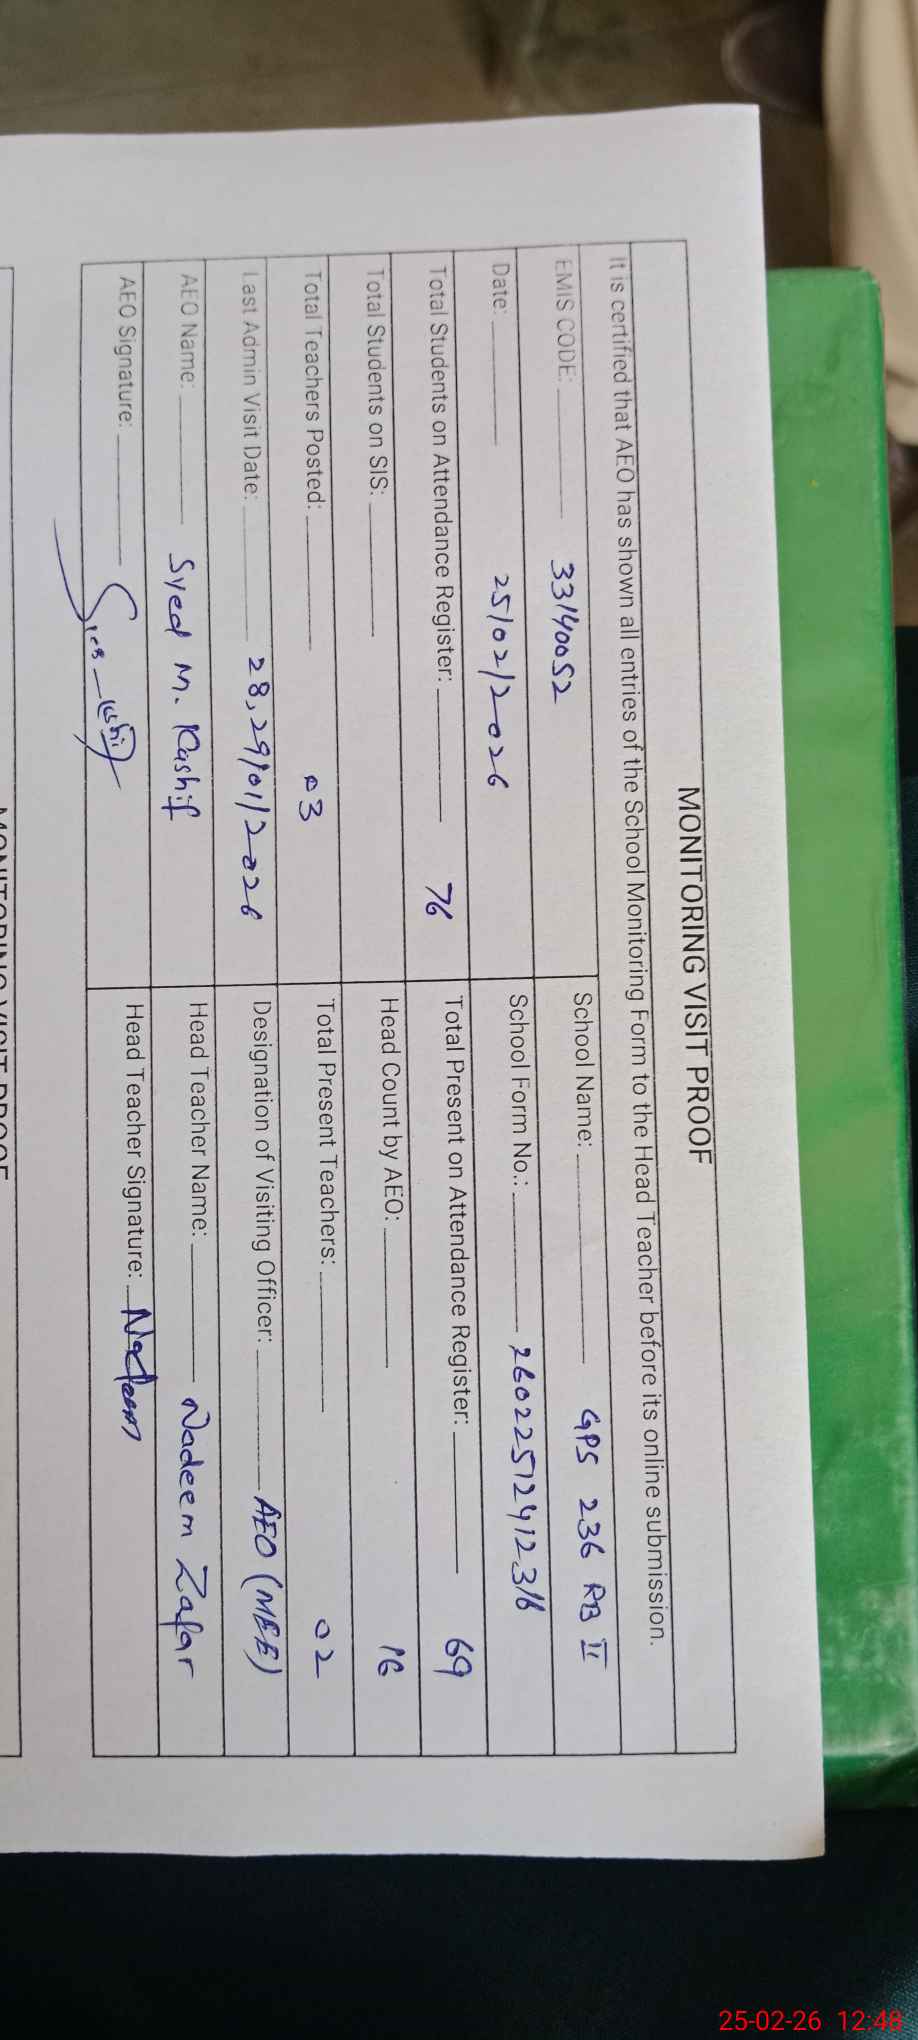 MONITORING VISIT PROOF
It is certified that AEO has shown all entries of the School Monitoring Form to the Head Teacher before its online submission.
EMIS CODE: 33140052 School Name: GPS 236 RB II
Date: 25/02/2026 School Form No.: 26022512412316
Total Students on Attendance Register: 76 Total Present on Attendance Register: 69
Total Students on SIS: Head Count by AEO: 16
Total Teachers Posted: 03 Total Present Teachers: 02
Last Admin Visit Date: 28,29/01/2026 Designation of Visiting Officer: AEO (MEE)
AEO Name: Syed M. Kashif Head Teacher Name: Nadeem Zafar
AEO Signature: Head Teacher Signature: Nadeem
MONITORING VISIT PROOF
25-02-26 12:48